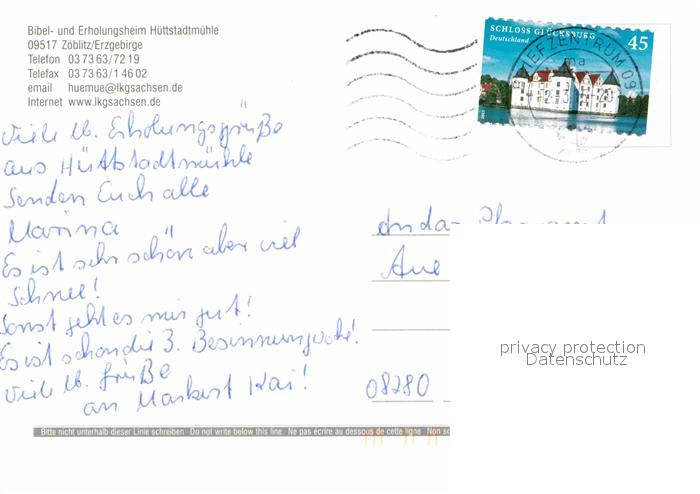 Bibel- und Erholungsheim Hüttstadtmühle
09517 Zöblitz/Erzgebirge
Telefon 03 73 63/72 19
Telefax 03 73 63/1 46 02
email huemue@lkgsachsen.de
Internet www.lkgsachsen.de
SCHLOSS GLÜCKSBURG 45
Deutschland
BRIEFZENTRUM 09
ma
Viele lb. Erholungsgrüße
aus Hüttstadtmühle
senden Euch alle
Marina
Es ist sehr schön aber viel
Schnee!
Sonst geht es mir gut!
Es ist schon die 3. Besinnungwoche!
Viele lb. Grüße
an Markert Kai!
An da
Aue
08280
privacy protection
Datenschutz
Bitte nicht unterhalb dieser Linie schreiben Do not write below this line Ne pas écrire au dessous de cette ligne Non sc